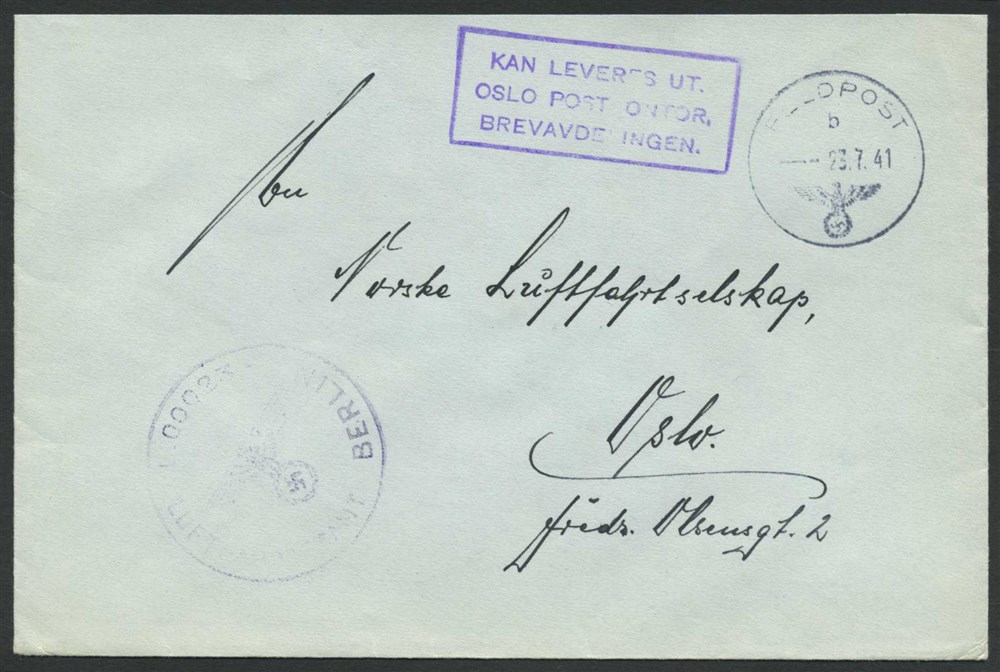 KAN LEVERES UT.
OSLO POSTKONTOR,
BREVAVDELINGEN.
FELDPOST
b
23.7.41
An
Norske Luftfahrtselskap,
Oslo.
Fredr. Olsensgt. 2
00023
BERLIN